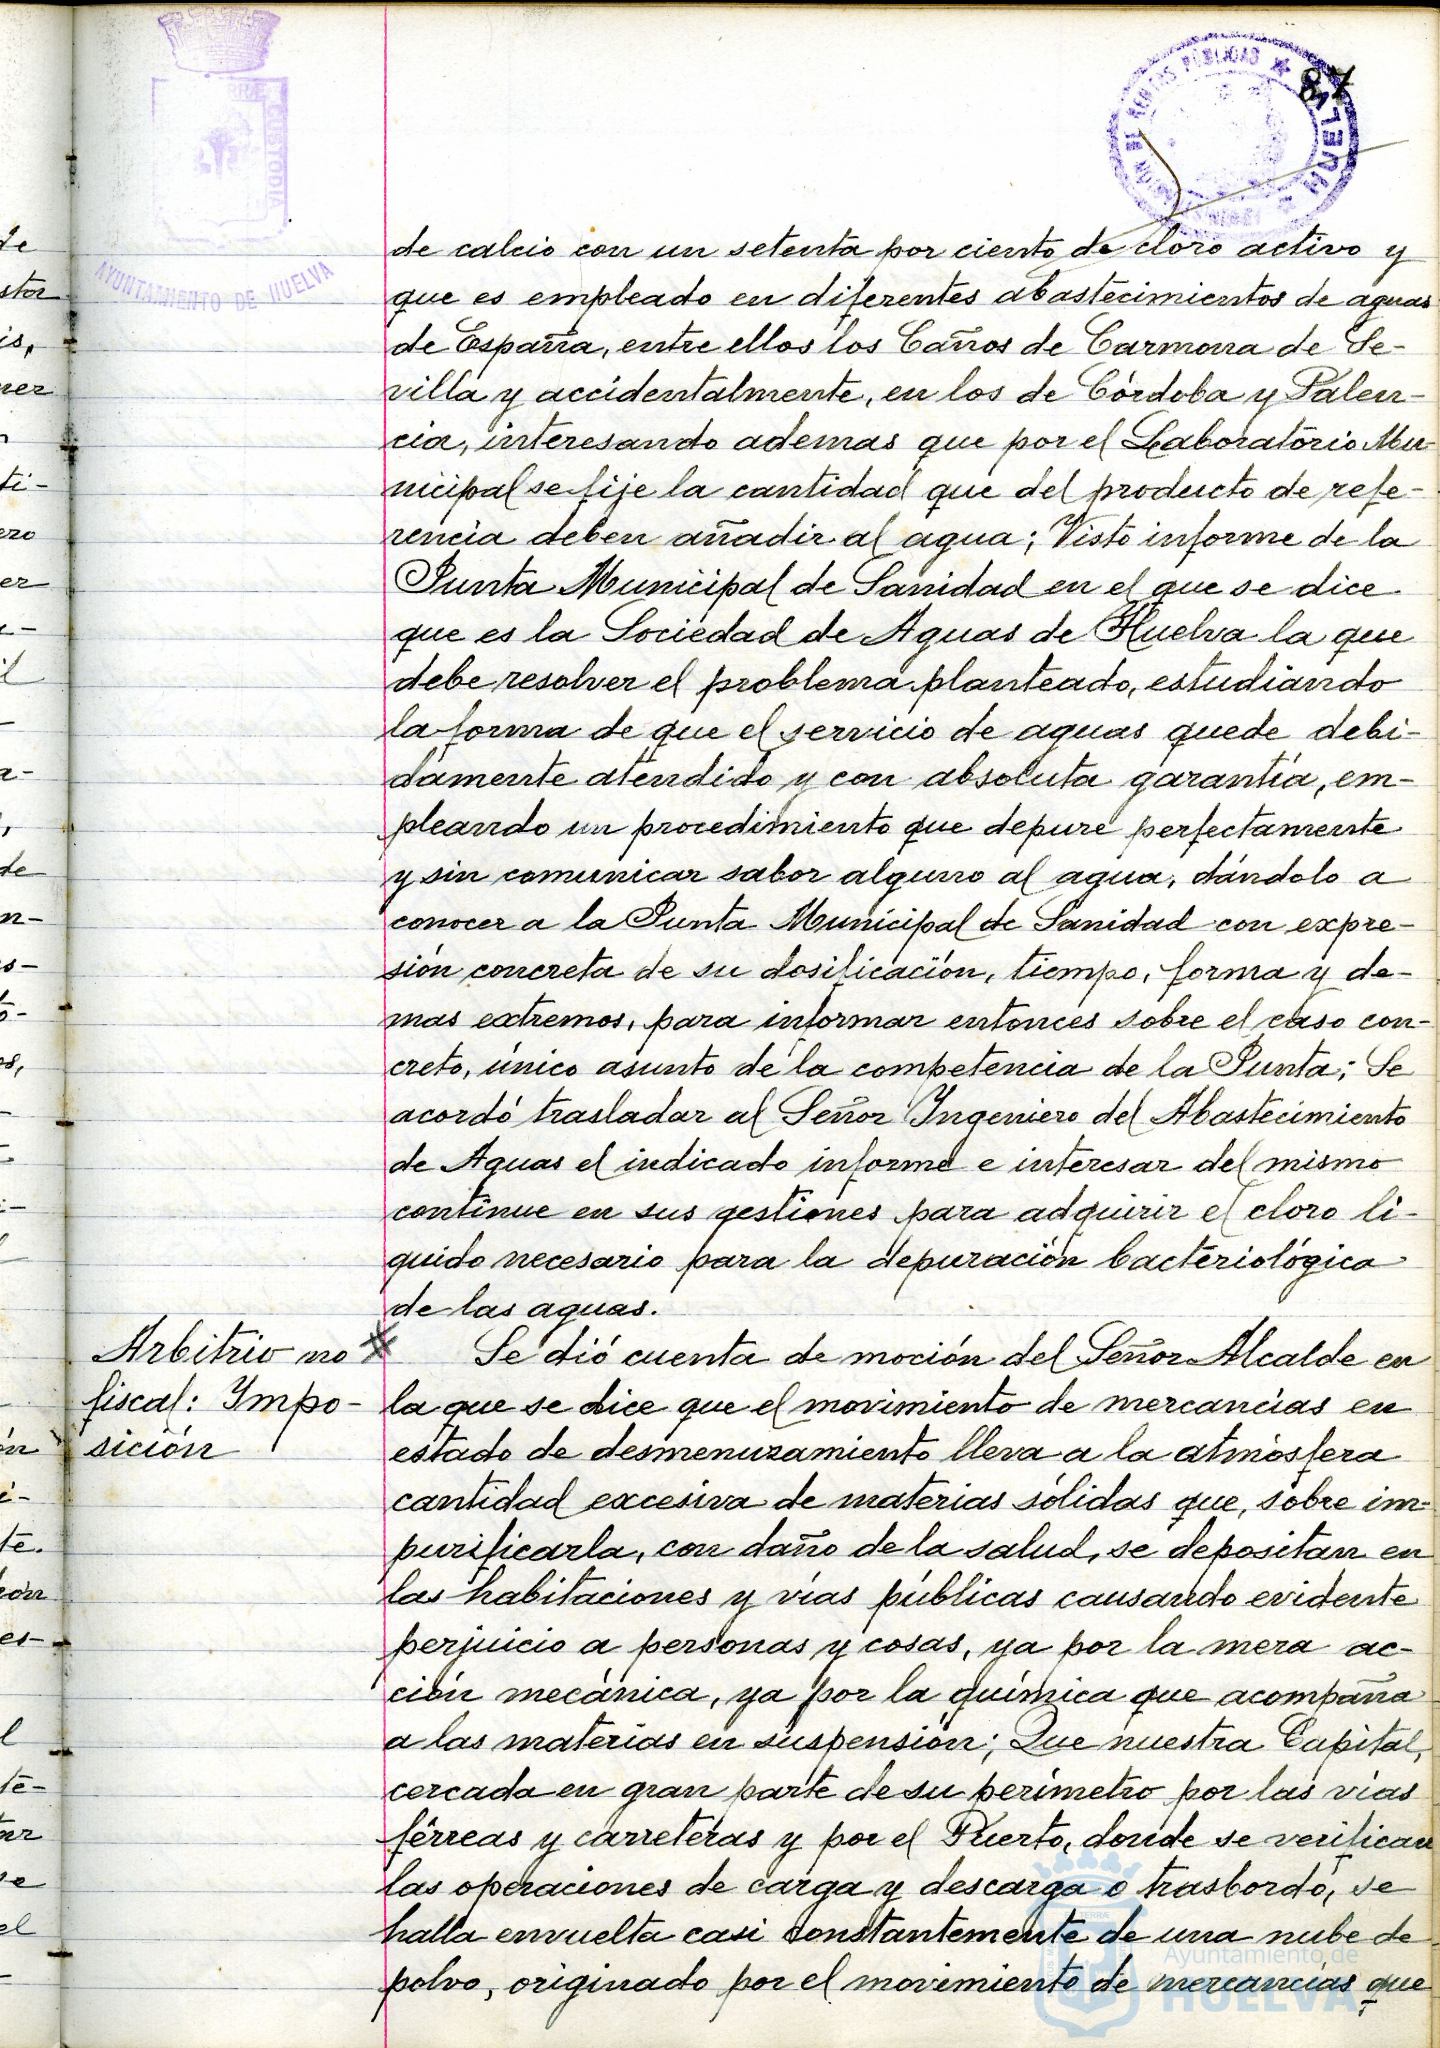 87
AYUNTAMIENTO DE HUELVA
CUSTODIA
HUELVA
de calcio con un setenta por ciento de cloro activo y
que es empleado en diferentes abastecimientos de aguas
de España, entre ellos los Caños de Carmona de Se-
villa y accidentalmente, en los de Córdoba y Palen-
cia, interesando ademas que por el Laboratorio Mu-
nicipal se fije la cantidad que del producto de refe-
rencia deben añadir al agua; Visto informe de la
Junta Municipal de Sanidad en el que se dice
que es la Sociedad de Aguas de Huelva la que
debe resolver el problema planteado, estudiando
la forma de que el servicio de aguas quede debi-
damente atendido y con absoluta garantía, em-
pleando un procedimiento que depure perfectamente
y sin comunicar sabor alguno al agua, dándolo a
conocer a la Junta Municipal de Sanidad con expre-
sión concreta de su dosificación, tiempo, forma y de-
mas extremos, para informar entonces sobre el caso con-
creto, único asunto de la competencia de la Junta; Se
acordó trasladar al Señor Ingeniero del Abastecimiento
de Aguas el indicado informe e interesar del mismo
continue en sus gestiones para adquirir el cloro li-
quido necesario para la depuración bacteriológica
de las aguas.
Arbitrio no
fiscal: Impo-
sición
Se dió cuenta de moción del Señor Alcalde en
la que se dice que el movimiento de mercancías en
estado de desmenuzamiento lleva a la atmósfera
cantidad excesiva de materias sólidas que, sobre im-
purificarla, con daño de la salud, se depositan en
las habitaciones y vías públicas causando evidente
perjuicio a personas y cosas, ya por la mera ac-
ción mecánica, ya por la química que acompaña
a las materias en suspensión; Que nuestra Capital,
cercada en gran parte de su perímetro por las vías
férreas y carreteras y por el Puerto, donde se verifican
las operaciones de carga y descarga o trasbordo, se
halla envuelta casi constantemente de una nube de
polvo, originado por el movimiento de mercancías que
Ayuntamiento de
HUELVA